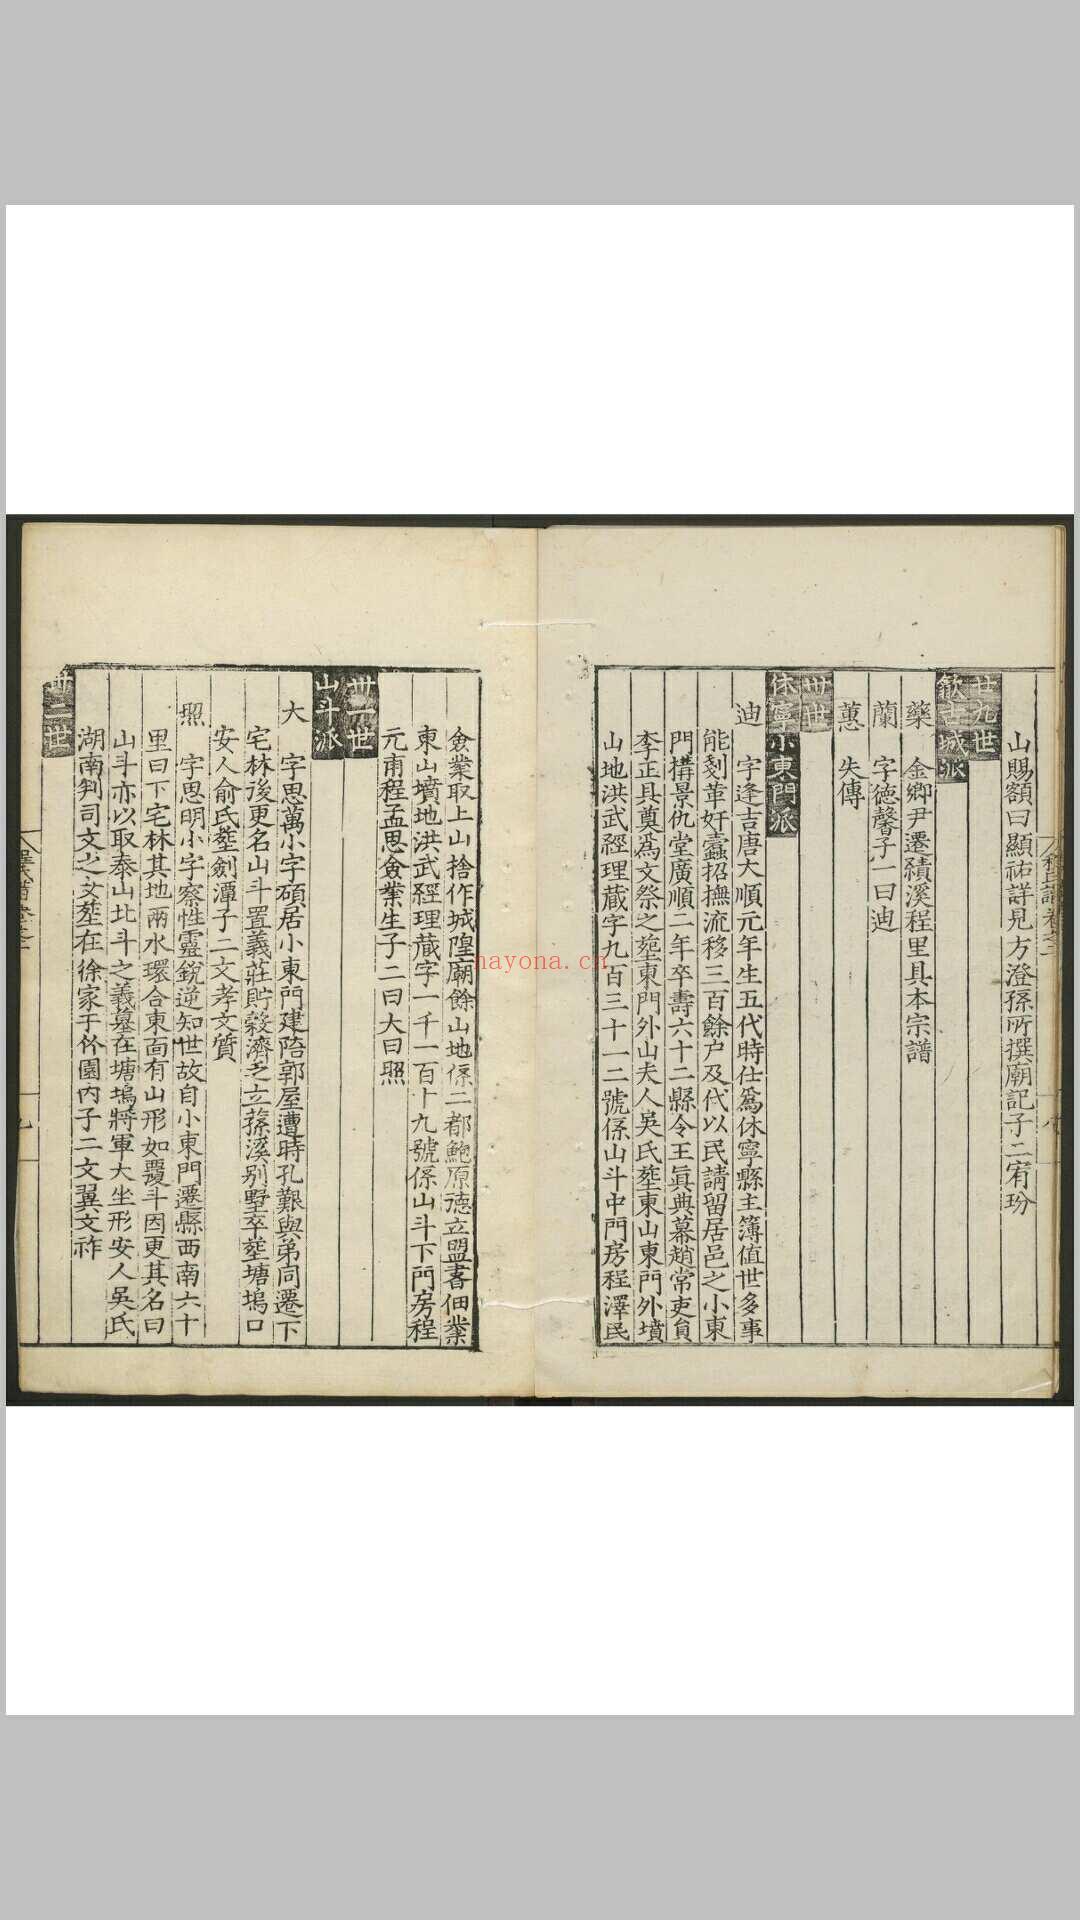 山賜額曰顯祐詳見方澄孫所撰廟記子二宥玢
廿九世
歙古城派
藥 金鄉尹遷績溪程里具本宗譜
蘭 字德馨子一曰迪
蕙 失傳
卅世
休寧小東門派
迪 字逢吉唐大順元年生五代時仕爲休寧縣主簿值世多事
能剗革奸蠹招撫流移三百餘户及代以民請留居邑之小東
門搆景仇堂廣順二年卒壽六十二縣令王眞典幕趙常吏貟
李正具奠爲文祭之塟東門外山夫人吳氏塟東山東門外墳
山地洪武經理蔵字九百三十一二號係山斗中門房程澤民
僉業取上山捨作城隍廟餘山地係二都鮑原德立盟書佃業
東山墳地洪武經理蔵字一千一百十九號係山斗下門房程
元甫程孟思僉業生子二曰大曰照
卅一世
山斗派
大 字思萬小字碩居小東門建陪郭屋遭時孔艱與弟同遷下
宅林後更名山斗置義莊貯穀濟乏立蓀溪别墅卒塟塘塢口
安人俞氏塟劍潭子二文孝文質
照 字思明小字察性靈銳逆知世故自小東門遷縣西南六十
里曰下宅林其地兩水環合東面有山形如覆斗因更其名曰
山斗亦以取泰山北斗之義墓在塘塢將軍大坐形安人吳氏
湖南判司文之女塟在徐家于伱園内子二文翼文祚
卅二世
nayona.cn